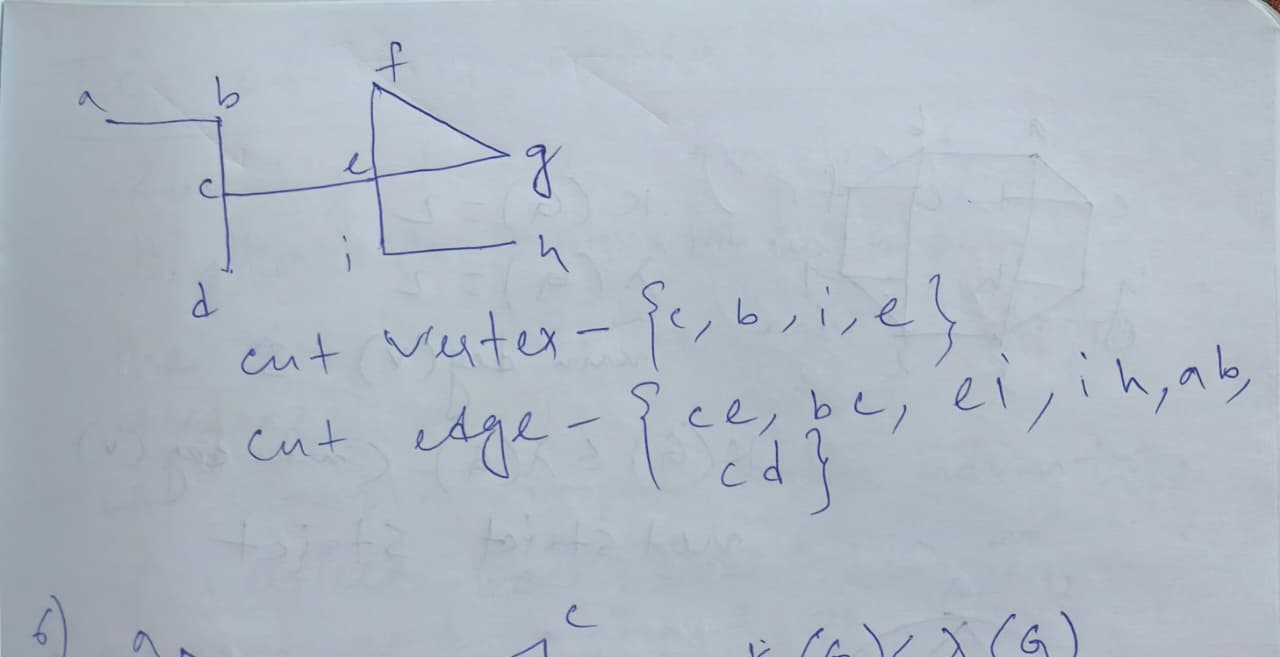 f
a b
e g
c
i h
d
cut vertex - {c, b, i, e}
cut edge - {ce, bc, ei, ih, ab,
cd}
6) a c K(G) < λ(G)